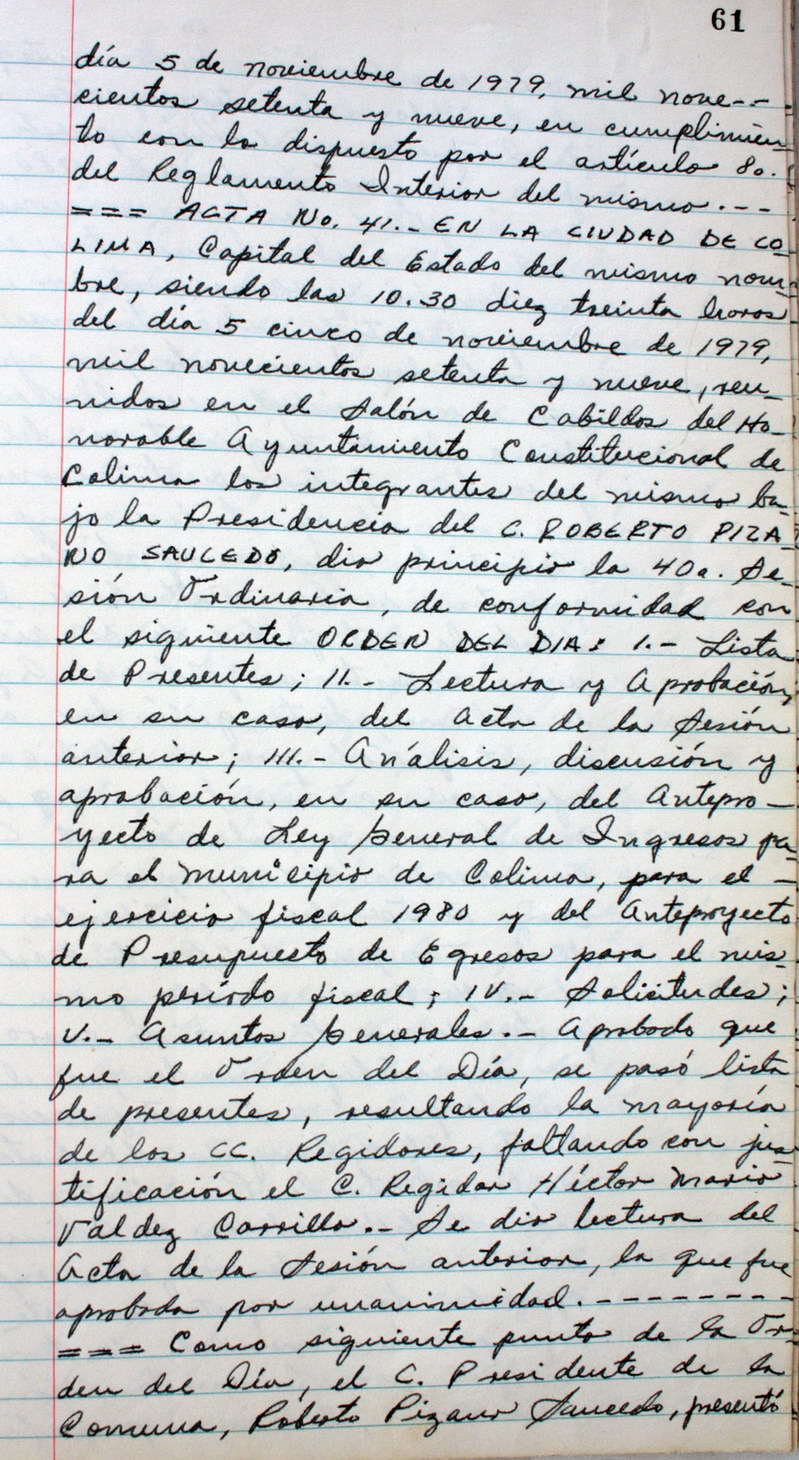 61
día 5 de noviembre de 1979, mil nove--
cientos setenta y nueve, en cumplimien
to con lo dispuesto por el artículo 8o.
del Reglamento Interior del mismo.---
=== ACTA No. 41.- EN LA CIUDAD DE CO
LIMA, Capital del Estado del mismo nom-
bre, siendo las 10.30 diez treinta horas
del día 5 cinco de noviembre de 1979,
mil novecientos setenta y nueve, reu-
nidos en el Salón de Cabildos del Ho-
norable Ayuntamiento Constitucional de
Colima los integrantes del mismo ba-
jo la Presidencia del C. ROBERTO PIZA-
NO SAUCEDO, dio principio la 40a. Se-
sión Ordinaria, de conformidad con
el siguiente ORDEN DEL DIA: I.- Lista
de Presentes; II.- Lectura y Aprobación,
en su caso, del Acta de la Sesión
anterior; III.- Análisis, discusión y
aprobación, en su caso, del Antepro-
yecto de Ley General de Ingresos pa-
ra el Municipio de Colima, para el -
ejercicio fiscal 1980 y del Anteproyecto
de Presupuesto de Egresos para el mis-
mo período fiscal; IV.- Solicitudes;
V.- Asuntos Generales.- Aprobado que
fue el Orden del Día, se pasó lista
de presentes, resultando la mayoría
de los CC. Regidores, faltando con jus-
tificación el C. Regidor Héctor Mario
Valdez Carrillo.- Se dio lectura del
Acta de la Sesión anterior, la que fue
aprobada por unanimidad.--------
=== Como siguiente punto de la Or-
den del Día, el C. Presidente de la
Comuna, Roberto Pizano Saucedo, presentó